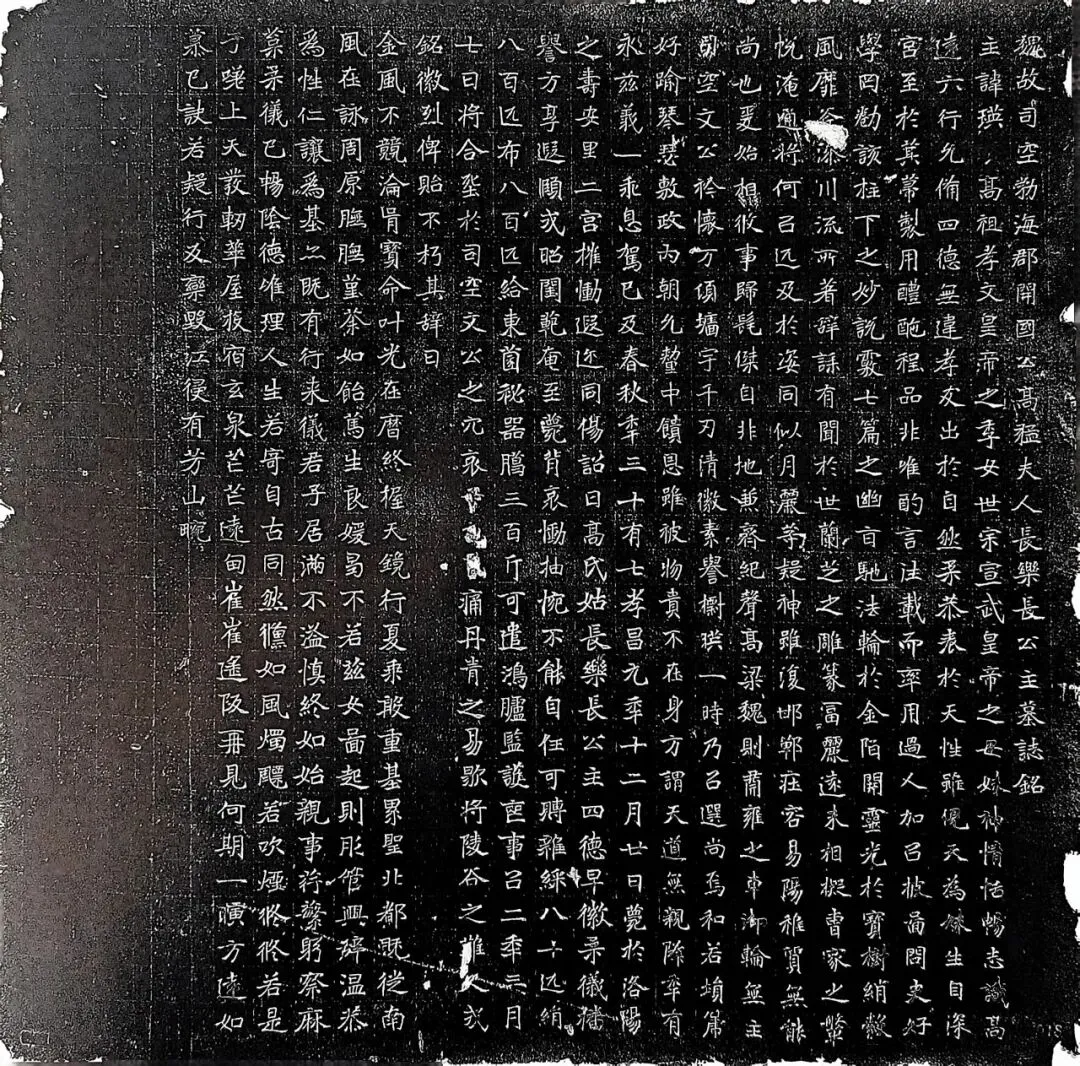 魏故司空勃海郡開國公髙猛夫人長樂長公主墓誌銘
主諱瑛髙祖孝文皇帝之季女世宗宣武皇帝之母妹神情恬暢志識髙
遠六行允俻四德無違孝友出於自然柔恭表於天性雖俔天爲妹生自深
宮至於箕箒製用醴酏程品非唯酌言往載而率用過人加㠯披圖問史好
學罔勌該柱下之妙説覈七篇之幽旨馳法輪於金陌開靈光於寶樹綃縠
風靡芬添川流所著辝誄有聞於世蘭芝之雕篆富麗遠未相擬曹家之
恱淹通將何㠯匹及於姿同似月麗等疑神雖復邯鄲莊容易陽稚質無能
尚也爰始相攸事歸髦傑自非地兼齊紀聲髙梁魏則肅雍之車御輪無主
司空文公衿懷万頃墻宇千刃清徽素譽樹珙一時乃㠯選尚焉和若塤箎
好踰琴瑟敷政內朝允釐中饋恩雖被物貴不在身方謂天道無親降年有
永兹義一乖息駕已及春秋季三十有七孝昌元年十二月廿日薨於洛陽
之壽安里二宮摧慟遐迩同傷詔曰髙氏姑長樂長公主四德早徽柔儀播
譽方享遐頤式昭閨範奄至薨背哀慟抽惋不能自任可賻雜綵八十匹絹
八百匹布八百匹給東園秘器臈三百斤可遣鴻臚監護喪事㠯二年三月
七日將合塟於司空文公之穴哀痛丹青之易歇將陵谷之難久式
銘徽烈俾貽不朽其辭曰
金風不競淪胥寶命叶光在曆終握天鏡行夏乘殷重基累聖北都既從南
風在詠周原膴膴堇荼如飴篤生良媛曷不若兹女啚起則彤管興碎温恭
爲性仁讓爲基亦既有行来儀君子居滿不溢慎終如始親事蘋蘩躬察麻
枲柔儀已暢陰德唯理人生若寄自古同然儵如風燭飄若吹煙悠悠若是
于嗟上天發軔華屋稅宿玄泉芒芒遠甸崔崔遙阪再見何期一暝方遠如
慕已訣若疑行反欒毀江侵有芳山晼